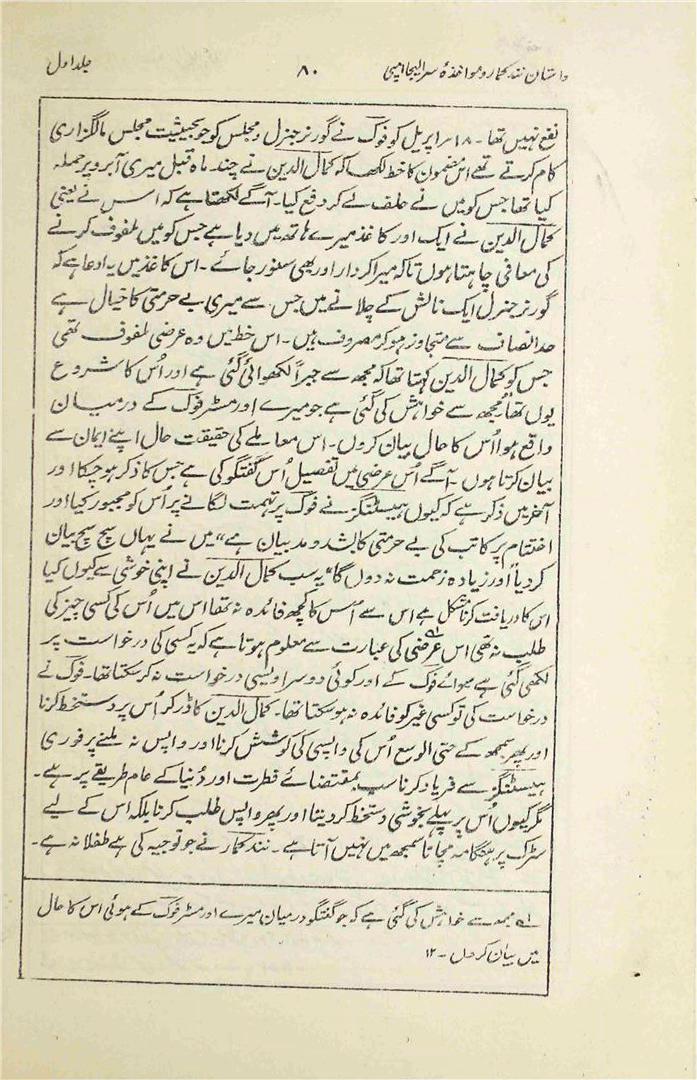 داستان نند کمار و مواخذۂ سر الیجا امپی ۸۰ جلد اول
نفع نہیں تھا۔ ۱۸؍ اپریل کو فوک نے گورنر جنرل و مجلس کو جو بحیثیت مجلس مالگزاری
کام کرتے تھے اس مضمون کا خط لکھا کہ کمال الدین نے چند ماہ قبل میری آبرو پر حملہ
کیا تھا جس کو میں نے حلف لے کر دفع کیا۔ آگے لکھتا ہے کہ اس نے یعنی
کمال الدین نے ایک اور کاغذ میرے ہاتھ میں دیا ہے جس کو میں ملفوف کرنے
کی معافی چاہتا ہوں تاکہ میرا کردار اور بھی سنور جائے۔ اس کاغذ میں یہ ادعا ہے کہ
گورنر جنرل ایک نالش کے چلانے میں جس سے میری بے حرمتی کا خیال ہے
حد انصاف سے متجاوز ہو کر مصروف ہیں۔ اس خط میں وہ عرضی ملفوف تھی
جس کو کمال الدین کہتا تھا کہ مجھ سے جبراً لکھوائی گئی ہے اور اُس کا شروع
یوں تھا "مجھ سے خواہش کی گئی ہے جو میرے اور مسٹر فوک کے درمیان
واقع ہوا اُس کا حال بیان کروں۔ اس معاملے کی حقیقت حال اپنے ایمان سے
بیان کرتا ہوں۔ آگے اُس عرضی میں تفصیل اُس گفتگو کی ہے جس کا ذکر ہو چکا اور
آخر میں ذکر ہے کہ کیوں ہیسٹنگز نے فوک پر تہمت لگانے پر اُس کو مجبور کیا اور
اختتام پر کاتب کی بے حرمتی کا لشد و مد بیان ہے "میں نے یہاں سچ سچ بیان
کر دیا اور زیادہ زحمت نہ دوں گا" یہ سب کمال الدین نے اپنی خوشی سے کیوں کیا
اس کا دریافت کرنا مشکل ہے اس سے اُس کا کچھ فائدہ نہ تھا اس میں اُس کی کسی چیز کی
طلب نہ تھی اس عرضی کی عبارت سے معلوم ہوتا ہے کہ یہ کسی کی درخواست پر
لکھی گئی ہے سوائے فوک کے اور کوئی دوسرا ویسی درخواست نہ کر سکتا تھا۔ فوک نے
درخواست کی تو کسی غیر کو فائدہ نہ ہو سکتا تھا۔ کمال الدین کا ڈر کر اُس پر دستخط کرنا
اور پھر سمجھ کے حتی الوسع اُس کی واپسی کی کوشش کرنا اور واپس نہ ملنے پر فوری
ہیسٹنگز سے فریاد کرنا سب بمقتضائے فطرت اور دُنیا کے عام طریقے پر ہے۔
مگر کیوں اُس پر پہلے بخوشی دستخط کر دیتا اور پھر واپس طلب کرنا بلکہ اس کے لیے
سڑک پر ہنگامہ مچانا سمجھ میں نہیں آتا ہے۔ نند کمار نے جو توجیہ کی ہے طفلانہ ہے۔
لہ مجھ سے خواہش کی گئی ہے کہ جو گفتگو درمیان میرے اور مسٹر فوک کے ہوئی اس کا حال
میں بیان کروں۔ ۱۲